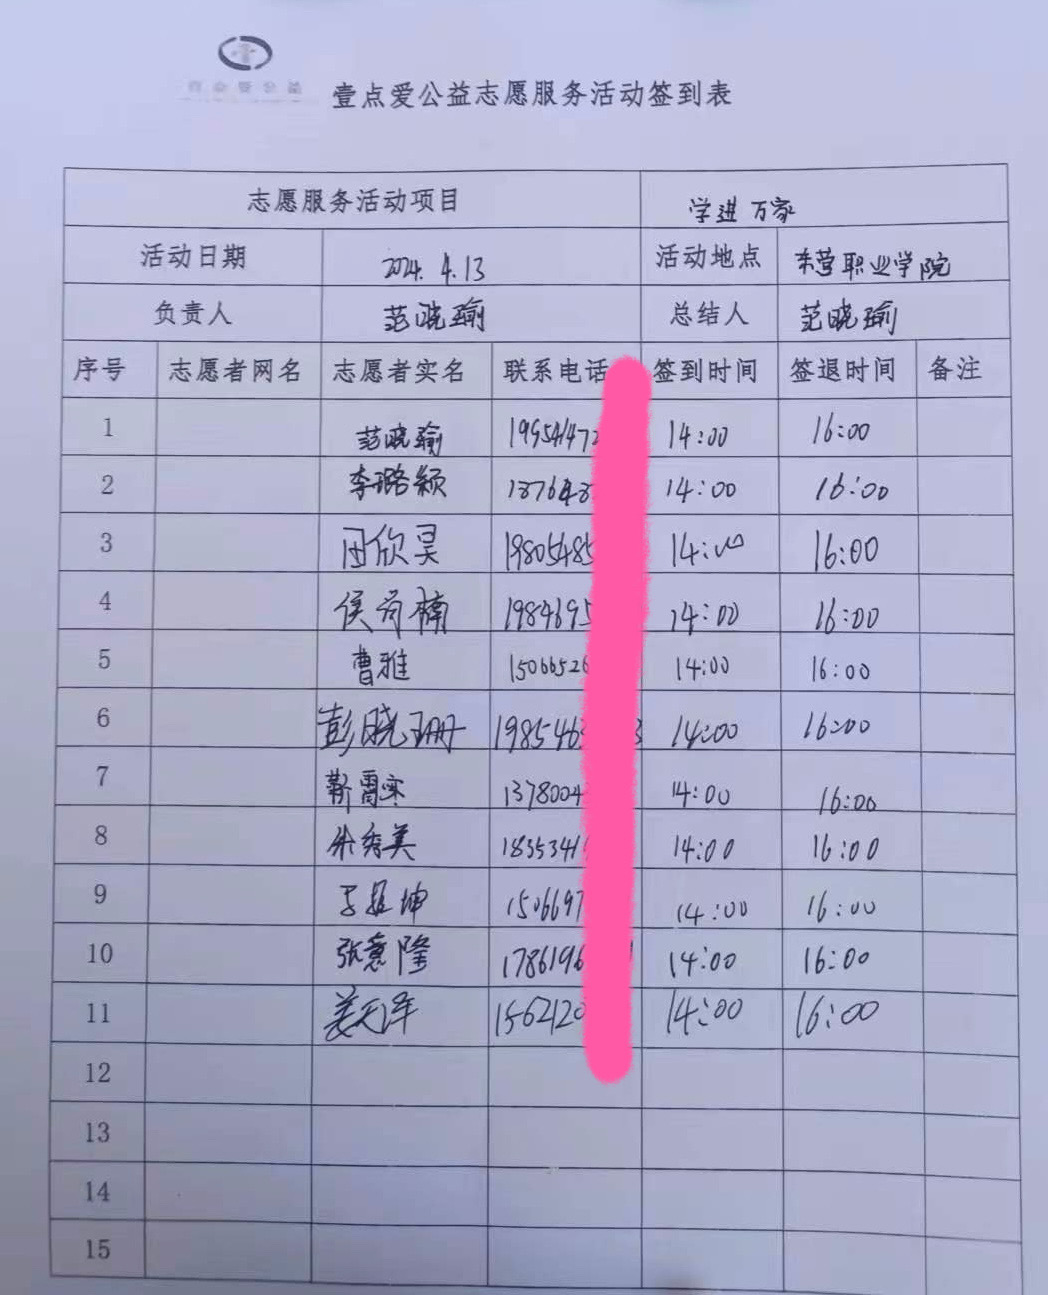 壹点爱公益志愿服务活动签到表
志愿服务活动项目 学进万家
活动日期 2024.4.13 活动地点 东营职业学院
负责人 范晓瑜 总结人 范晓瑜
序号 志愿者网名 志愿者实名 联系电话 签到时间 签退时间 备注
1 范晓瑜 19954147 14:00 16:00
2 李璐颖 1376 14:00 16:00
3 田欣昊 19805485 14:00 16:00
4 侯 楠 1984695 14:00 16:00
5 曹雅 1506652 14:00 16:00
6 彭晓珊 1985463 14:00 16:00
7 靳 1378004 14:00 16:00
8 朱秀美 1835341 14:00 16:00
9 坤 1506697 14:00 16:00
10 张意隆 1786196 14:00 16:00
11 姜 泽 1562120 14:00 16:00
12
13
14
15